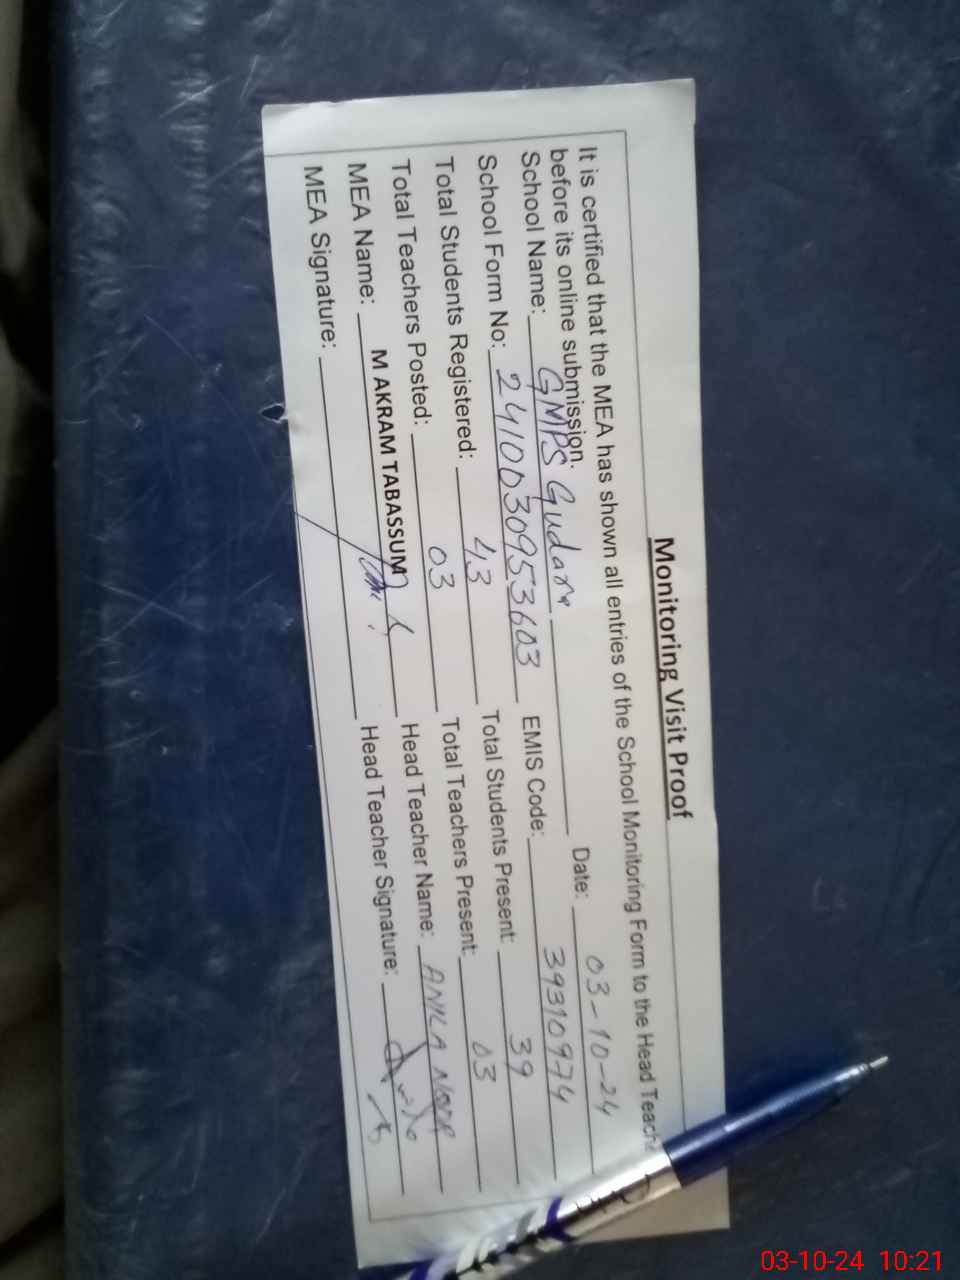 Monitoring Visit Proof
It is certified that the MEA has shown all entries of the School Monitoring Form to the Head Teach
before its online submission. Date: 03-10-24
School Name: GMPS Gudara
School Form No: 2410030953603 EMIS Code: 39310974
Total Students Registered: 43 Total Students Present: 39
Total Teachers Posted: 03 Total Teachers Present: 03
MEA Name: M AKRAM TABASSUM Head Teacher Name: ANILA NOOR
MEA Signature: Head Teacher Signature:
03-10-24 10:21